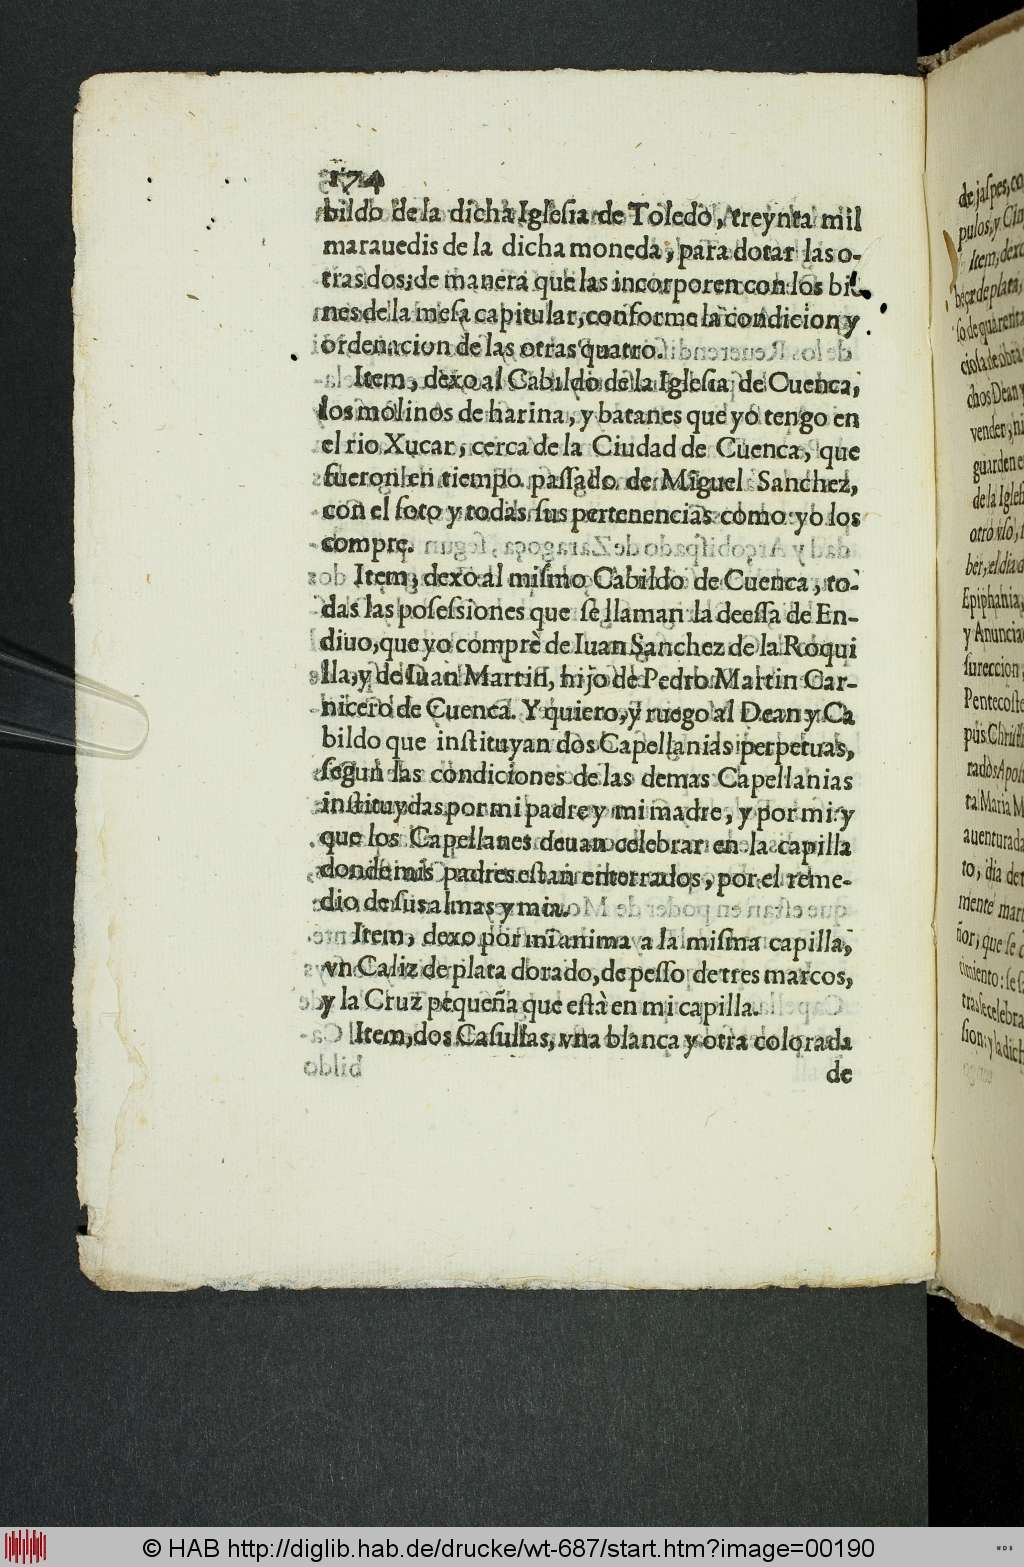 174
bildo de la dicha Iglesia de Toledo, treynta mil
marauedis de la dicha moneda, para dotar las o-
tras dos; de manera que las incorporen con los bie
nes de la mesa capitular, conforme la condicion y
ordenacion de las otras quatro.
Item, dexo al Cabildo de la Iglesia de Cuenca,
los molinos de harina, y batanes que yo tengo en
el rio Xucar, cerca de la Ciudad de Cuenca, que
fueron en tiempo passado de Miguel Sanchez,
con el soto y todas sus pertenencias como yo los
compre.
Item, dexo al mismo Cabildo de Cuenca, to-
das las posessiones que se llaman la deessa de En-
diuo, que yo comprè de Iuan Sanchez de la Roqui
lla, y de Iuan Martin, hijo de Pedro Martin Car-
nicero de Cuenca. Y quiero, y ruego al Dean y Ca
bildo que instituyan dos Capellanias perpetuas,
segun las condiciones de las demas Capellanias
instituydas por mi padre y mi madre, y por mi: y
que los Capellanes deuan celebrar en la capilla
donde mis padres estan enterrados, por el reme-
dio de sus almas y mia.
Item, dexo por mi anima a la misma capilla,
vn Caliz de plata dorado, de pesso de tres marcos,
y la Cruz pequeña que està en mi capilla.
Item, dos Casullas, vna blanca y otra colorada
de
de jaspes, co
pulos, y
Item, dexo
de plata,
so de quarenta
ciosa de obra
chos Dean y
vender, ni
guarden en
de la Igles
otro vso,
ber, el dia d
Epiphania,
y Anuncia
surreccion,
Pentecoste
pus Christi
rados Apos
ta Maria M
auenturada
to, dia de
mente mar
ñor, que se c
cimiento: se
tras se celebra
sion: y la dich
© HAB http://diglib.hab.de/drucke/wt-687/start.htm?image=00190